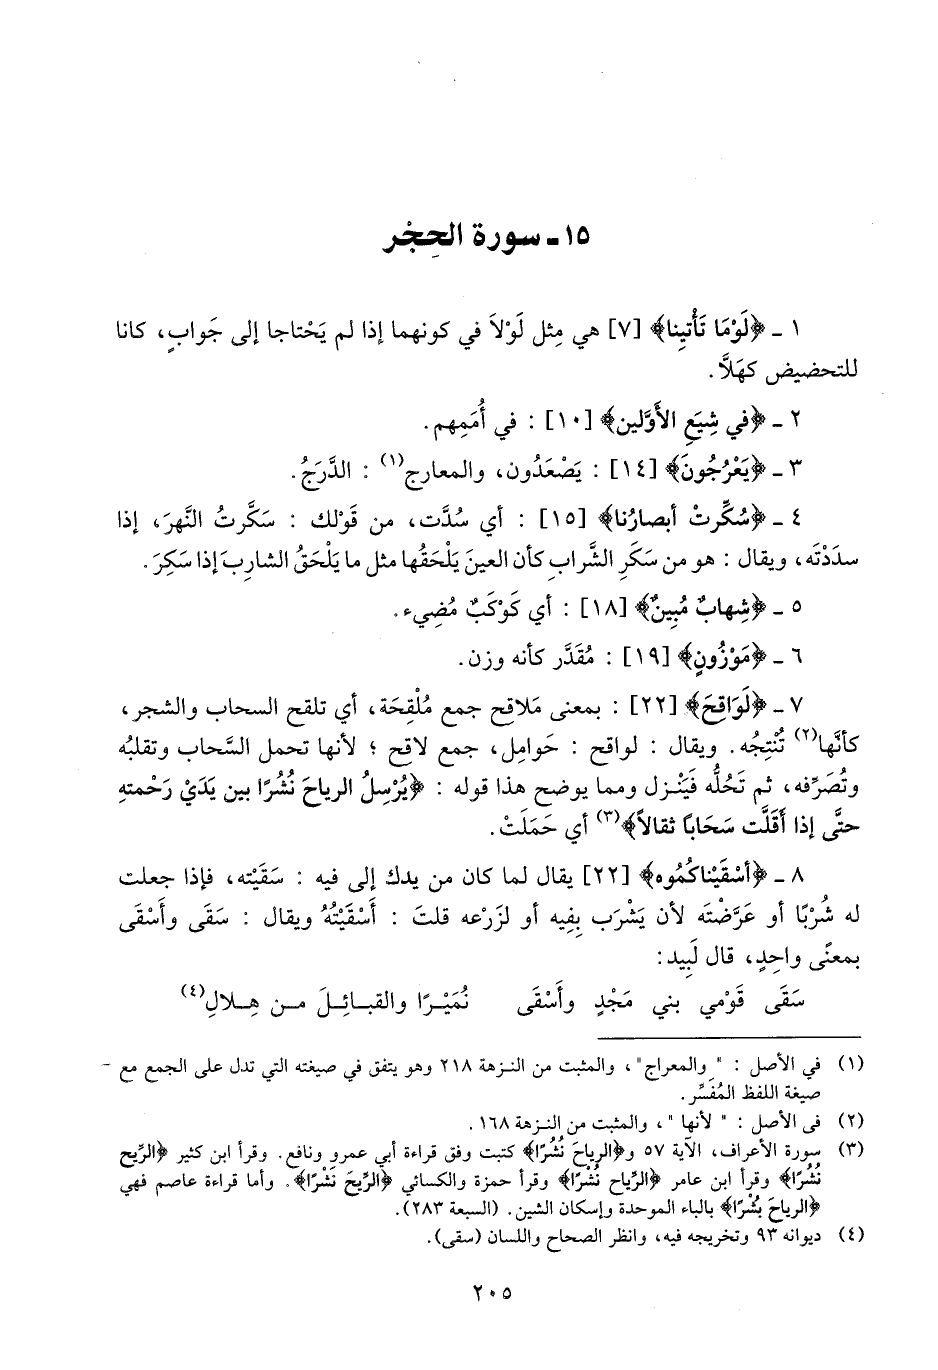 ١٥ ـ سورة الحِجْر
١ ـ ﴿لَوْمَا تَأْتِينا﴾ [٧] هي مِثل لَوْلاَ في كونهما إذا لم يَحْتاجا إلى جَوابٍ، كانا
للتحضيض كهَلاَّ.
٢ ـ ﴿في شِيَعِ الأَوَّلين﴾ [١٠] : في أُمَمِهم.
٣ ـ ﴿يَعْرُجُونَ﴾ [١٤] : يَصْعَدُون، والمعارج(١) : الدَّرَجُ.
٤ ـ ﴿سُكِّرتْ أبصارُنا﴾ [١٥] : أي سُدَّت، من قَوْلك : سَكَّرتُ النَّهرَ، إذا
سدَدْتَه، ويقال : هو من سَكَرِ الشَّرابِ كأن العينَ يَلْحَقُها مثل ما يَلْحَقُ الشارِبَ إذا سَكِرَ.
٥ ـ ﴿شِهابٌ مُبِينٌ﴾ [١٨] : أي كَوْكَبٌ مُضِيء.
٦ ـ ﴿مَوْزُونٍ﴾ [١٩] : مُقَدَّر كأنه وزن.
٧ ـ ﴿لَوَاقِحَ﴾ [٢٢] : بمعنى مَلاقح جمع مُلْقِحَة، أي تلقح السحاب والشجر،
كأنَّها(٢) تُنْتِجُه. ويقال : لواقح : حَوامِل، جمع لاقح ؛ لأنها تحمل السَّحاب وتقلبُه
وتُصَرِّفه، ثم تَحُلُّه فَيَنْـزل ومما يوضح هذا قوله : ﴿يُرْسِلُ الرياحَ نُشُرًا بين يَدَيْ رَحْمتهِ
حتَّى إذا أَقَلَّت سَحَاباً ثقالاً﴾(٣) أي حَمَلَتْ.
٨ ـ ﴿أسْقَيْناكُمُوه﴾ [٢٢] يقال لما كان من يدك إلى فيه : سَقَيْته، فإذا جعلت
له شُرْبًا أو عَرَّضْتَه لأن يَشْرَب بِفِيه أو لزَرْعه قلتَ : أَسْقَيْتُهُ ويقال : سَقَى وأَسْقَى
بمعنًى واحِدٍ، قال لَبِيد:
سَقَى قَوْمي بني مَجْدٍ وأَسْقَى نُمَيْـرًا والقبـائـلَ مـن هِـلالِ(٤)
(١) في الأصل : "والمعراج"، والمثبت من النـزهة ٢١٨ وهو يتفق في صيغته التي تدل على الجمع مع ــ
صيغة اللفظ المُفَسَّر.
(٢) في الأصل : " لأنها "، والمثبت من النـزهة ١٦٨ .
(٣) سورة الأعراف، الآية ٥٧ و﴿الرياحَ نُشُرًا﴾ كتبت وفق قراءة أبي عمرو ونافع. وقرأ ابن كثير ﴿الرِّيح
نُشُرًا﴾ وقرأ ابن عامر ﴿الرِّياح نُشْرًا﴾ وقرأ حمزة والكسائي ﴿الرِّيحَ نَشْرًا﴾. وأما قراءة عاصم فهي
﴿الرياحَ بُشْرًا﴾ بالباء الموحدة وإسكان الشين. (السبعة ٢٨٣).
(٤) ديوانه ٩٣ وتخريجه فيه، وانظر الصحاح واللسان (سقى).
٢٠٥